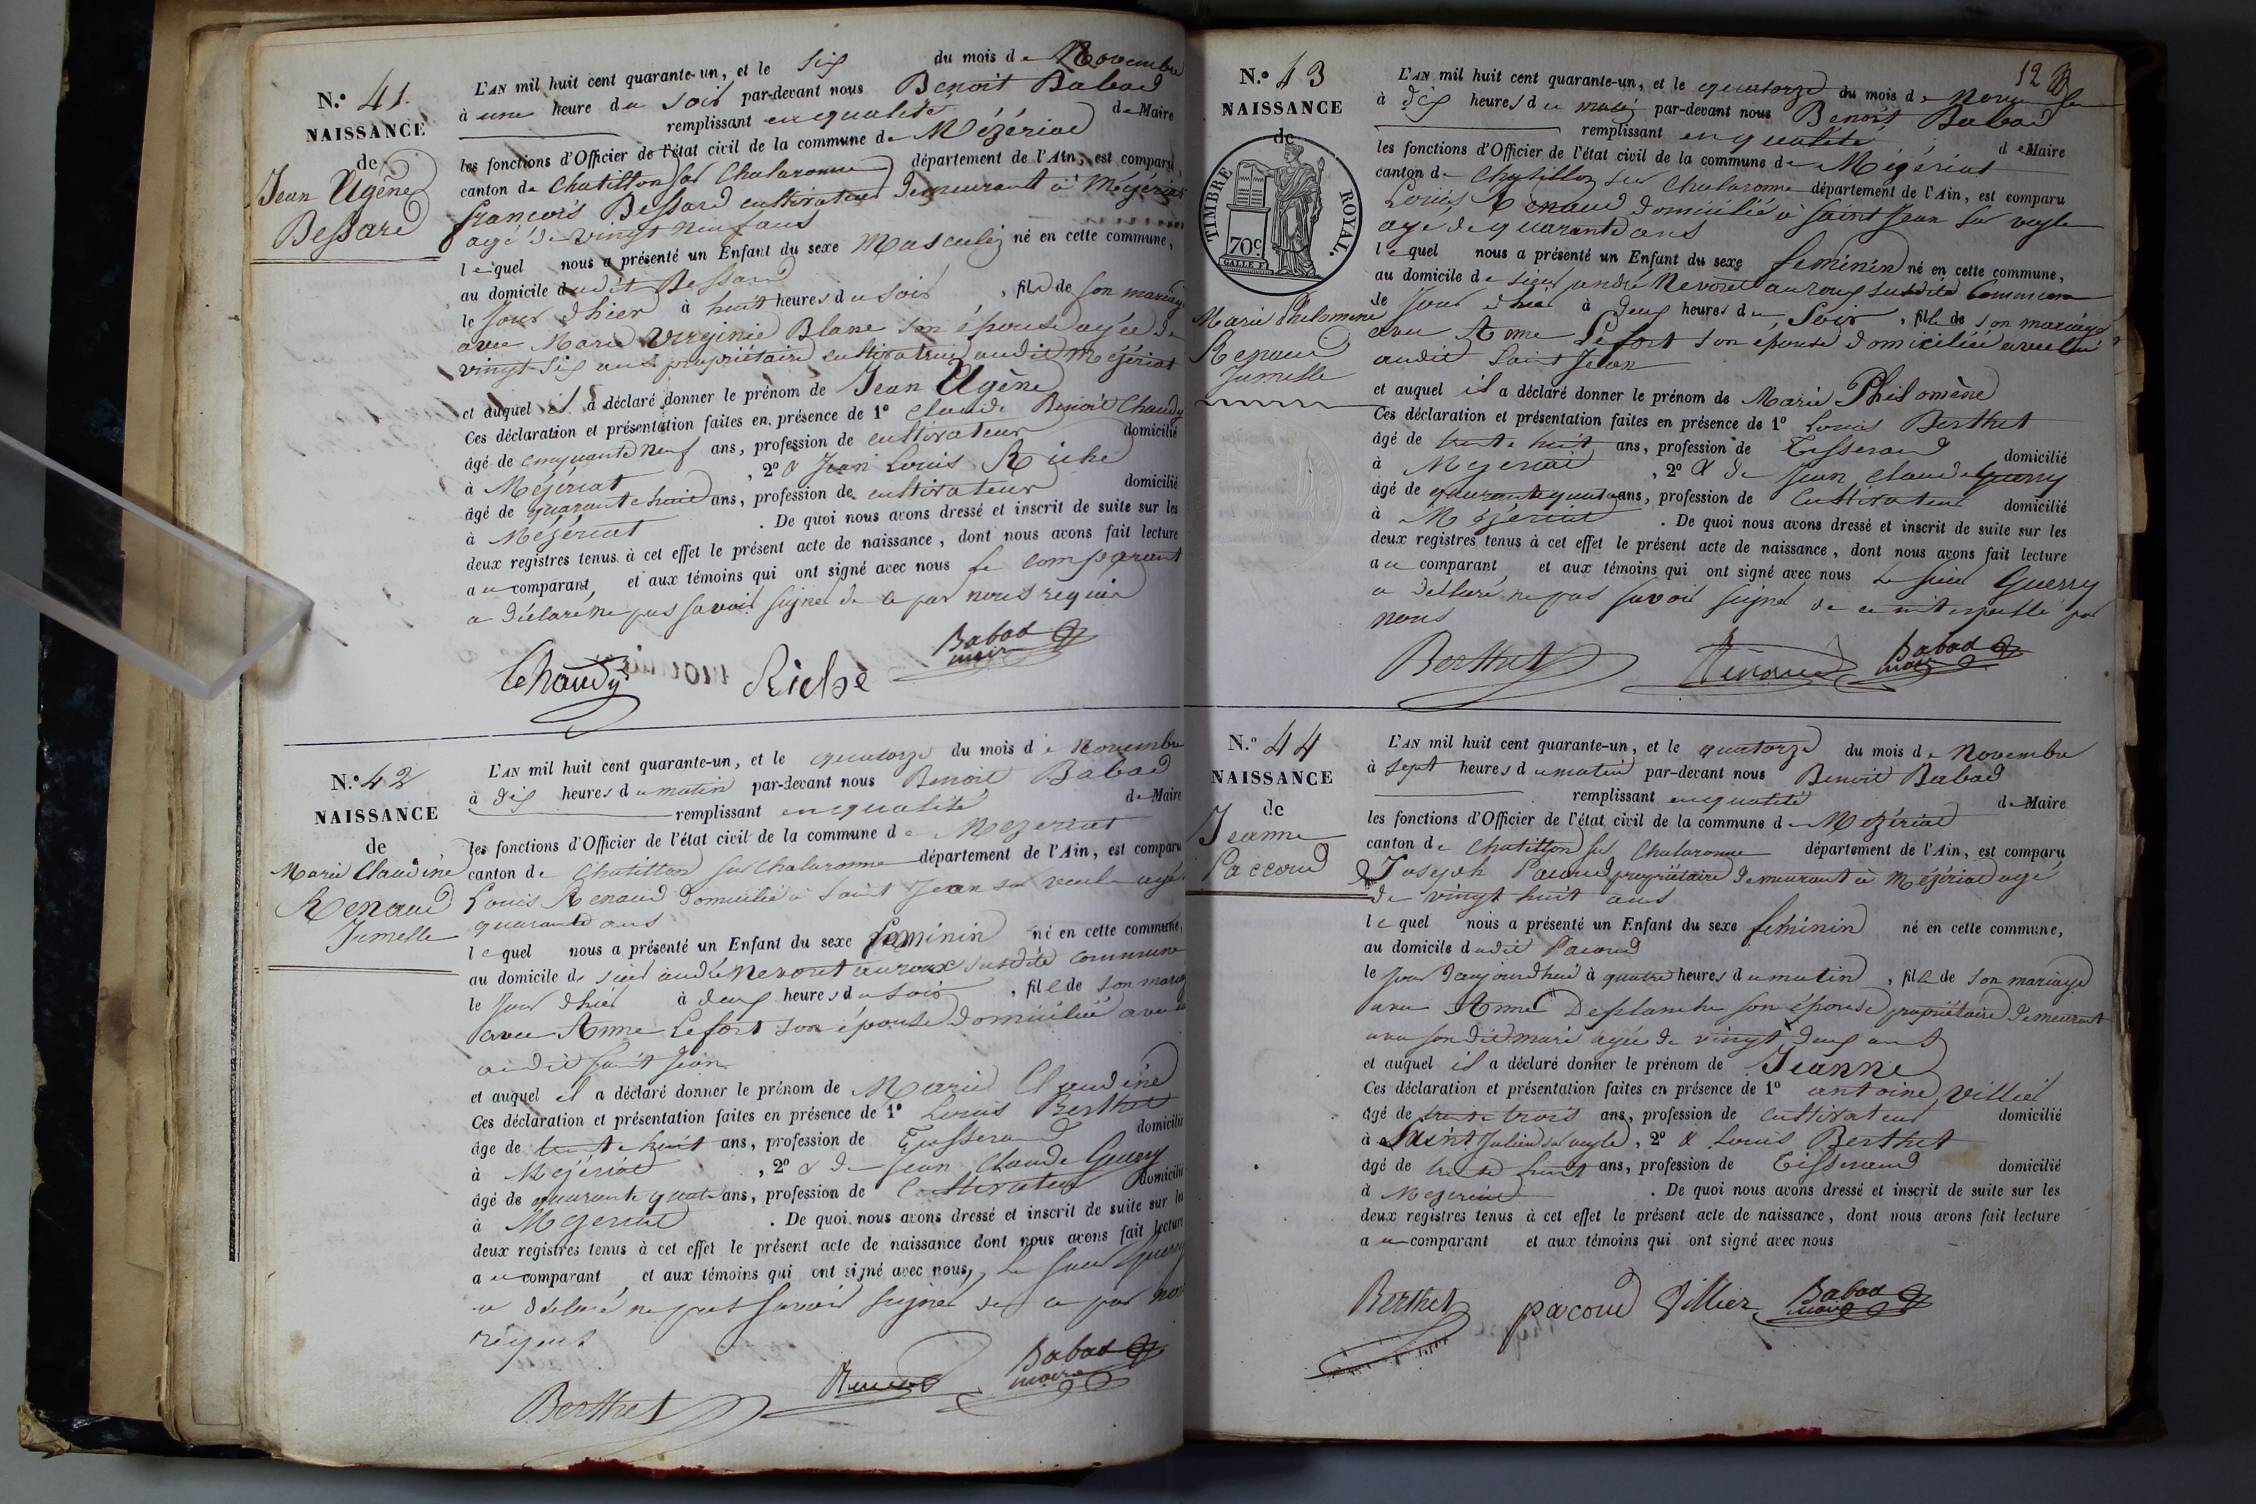 N.° 41.
NAISSANCE
de
Jean Ugène
Bessard
L'AN mil huit cent quarante-un, et le six du mois de Novembre
à une heure du soir par-devant nous Benoit Babad
remplissant en qualité de Maire
les fonctions d'Officier de l'état civil de la commune de Mézériat
canton de Chatillon sur Chalaronne département de l'Ain, est comparu
françois Bessard cultivateur demeurant à Mézériat
agé de vingt neuf ans
lequel nous a présenté un Enfant du sexe Masculin né en cette commune,
au domicile dudit Bessard
le jour d'hier à huit heures du soir, fils de son mariage
avec Marie Virginie Blanc son épouse agée de
vingt-six ans propriétaire cultivateur audit Mézériat
et auquel il a déclaré donner le prénom de Jean Ugène
Ces déclaration et présentation faites en présence de 1° Claude Benoit Chaudy
âgé de cinquante neuf ans, profession de cultivateur domicilié
à Mézériat, 2° & Jean Louis Riche
âgé de quarante huit ans, profession de cultivateur domicilié
à Mézériat. De quoi nous avons dressé et inscrit de suite sur les
deux registres tenus à cet effet le présent acte de naissance, dont nous avons fait lecture
au comparant et aux témoins qui ont signé avec nous le comparant
a déclaré ne pas savoir signer de ce par nous requis
Chaudy Riche Babad maire
N.° 42
NAISSANCE
de
Marie Claudine
Renaud
Jumelle
L'AN mil huit cent quarante-un, et le quatorze du mois de Novembre
à dix heures du matin par-devant nous Benoit Babad
remplissant en qualité de Maire
les fonctions d'Officier de l'état civil de la commune de Mezeriat
canton de Chatillon sur Chalaronne département de l'Ain, est comparu
Louis Renaud domicilié à Saint Jean sur veule agé
quarante ans
lequel nous a présenté un Enfant du sexe feminin né en cette commune,
au domicile de sieur andré Nevoret auroux susdite commune
le jour d'hier à deux heures du soir, fille de son mariage
avec Anne Lefort son épouse domiciliée avec lui
audit Saint Jean
et auquel il a déclaré donner le prénom de Marie Claudine
Ces déclaration et présentation faites en présence de 1° Louis Berthet
âge de trente huit ans, profession de Tisserand domicilié
à Mézériat, 2° & de Jean Claude Guerry
âgé de quarante quatre ans, profession de Cultivateur domicilié
à Mezeriat. De quoi nous avons dressé et inscrit de suite sur les
deux registres tenus à cet effet le présent acte de naissance dont nous avons fait lecture
au comparant et aux témoins qui ont signé avec nous, le sieur Guerry
a déclaré ne pas savoir signer de ce par nous
requis
Berthet Renaud Babad maire
12
N.° 43
NAISSANCE
de
TIMBRE ROYAL.
70c
Marie Philomène
Renaud
Jumelle
L'AN mil huit cent quarante-un, et le quatorze du mois de Novembre
à dix heures du matin par-devant nous Benoit Babad
remplissant en qualité de Maire
les fonctions d'Officier de l'état civil de la commune de Mézériat
canton de Chatillon sur Chalaronne département de l'Ain, est comparu
Louis Renaud domicilié à Saint Jean sur veyle
agé de quarante ans
lequel nous a présenté un Enfant du sexe feminin né en cette commune,
au domicile de sieur andré Nevoret auroux susdite Commune
le Jour d'hier à deux heures du Soir, fille de son mariage
avec Anne Lefort son épouse domiciliée avec lui
audit Saint Jean
et auquel il a déclaré donner le prénom de Marie Philomène
Ces déclaration et présentation faites en présence de 1° Louis Berthet
âgé de trente huit ans, profession de Tisserand domicilié
à Mezeriat, 2° & de Jean Claude Guerry
âgé de quarante quatre ans, profession de Cultivateur domicilié
à Mézériat. De quoi nous avons dressé et inscrit de suite sur les
deux registres tenus à cet effet le présent acte de naissance, dont nous avons fait lecture
au comparant et aux témoins qui ont signé avec nous le sieur Guerry
a déclaré ne pas savoir signer de ce interpellé par
nous
Berthet Renaud Babad maire
N.° 44
NAISSANCE
de
Jeanne
Paccoud
L'AN mil huit cent quarante-un, et le quatorze du mois de Novembre
à sept heures du matin par-devant nous Benoit Babad
remplissant en qualité de Maire
les fonctions d'Officier de l'état civil de la commune de Mézériat
canton de Chatillon sur Chalaronne département de l'Ain, est comparu
Joseph Pacoud propriétaire demeurant à Mézériat agé
de vingt huit ans
lequel nous a présenté un Enfant du sexe feminin né en cette commune,
au domicile dudit Pacoud
le jour d'aujourd'hui à quatre heures du matin, fille de son mariage
avec Anne Desplanche son épouse propriétaire demeurant
avec son dit mari agée de vingt deux ans
et auquel il a déclaré donner le prénom de Jeanne
Ces déclaration et présentation faites en présence de 1° antoine Villier
âgé de trente trois ans, profession de cultivateur domicilié
à Saint Julien sur veyle, 2° & Louis Berthet
âgé de trente huit ans, profession de Tisserand domicilié
à Mezeriat. De quoi nous avons dressé et inscrit de suite sur les
deux registres tenus à cet effet le présent acte de naissance, dont nous avons fait lecture
au comparant et aux témoins qui ont signé avec nous
Berthet pacoud Villier Babad maire